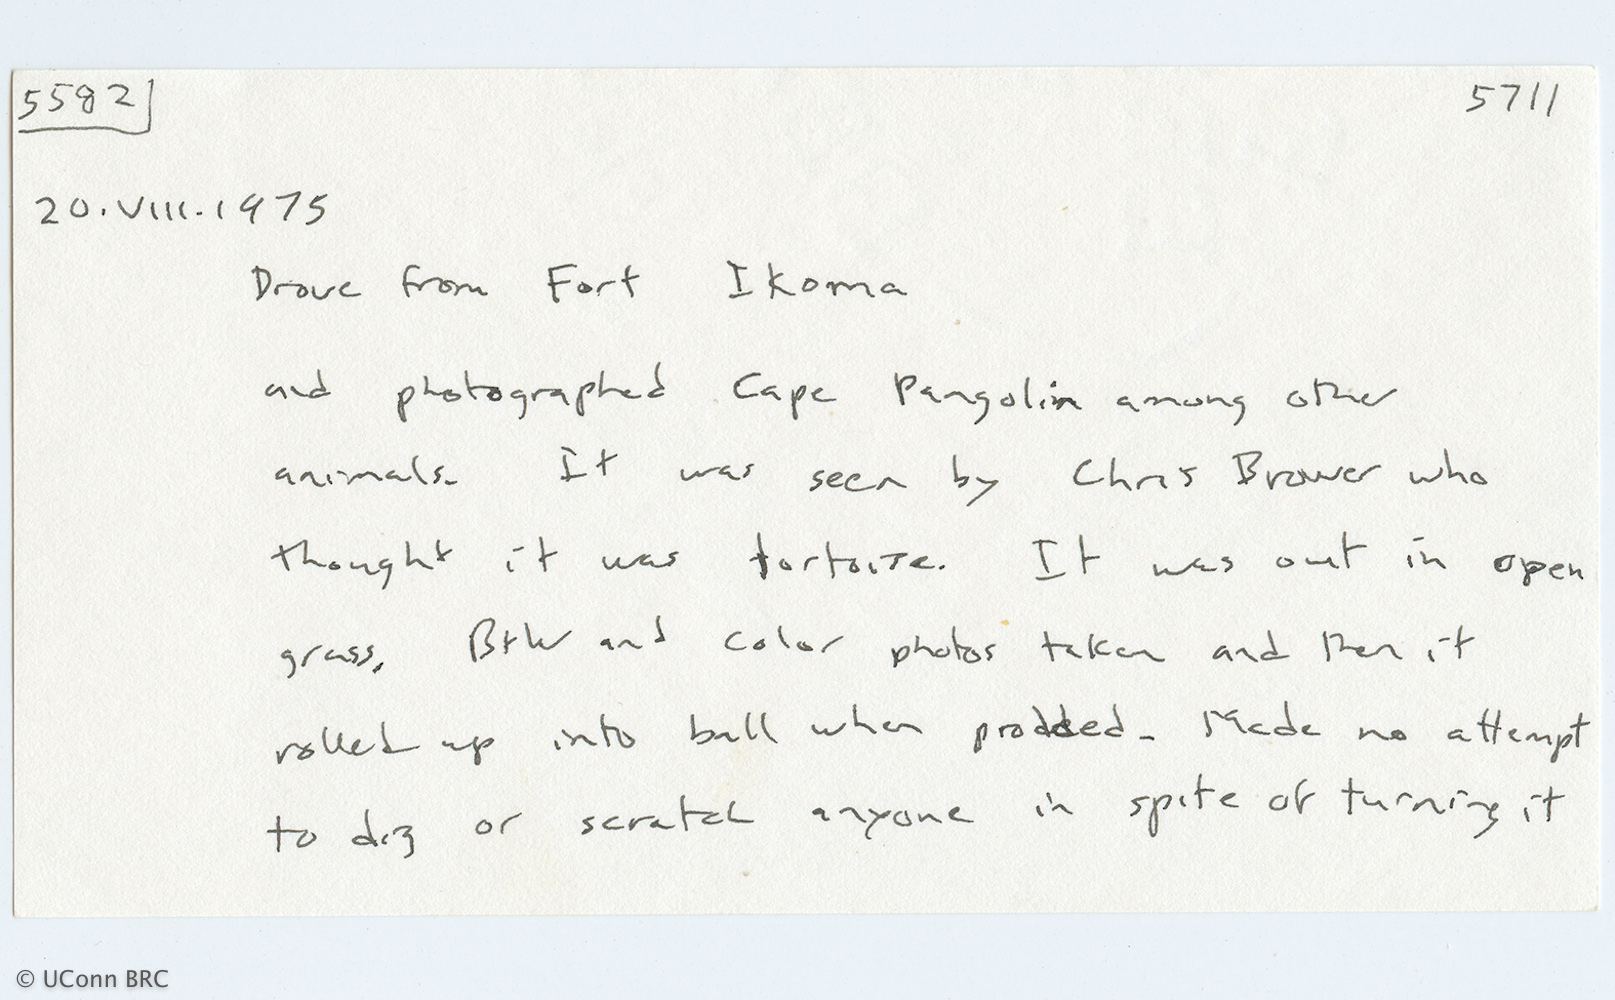 5582 5711
20.VIII.1975
Drove from Fort Ikoma
and photographed Cape Pangolin among other
animals. It was seen by Chris Brower who
thought it was tortoise. It was out in open
grass. B+W and color photos taken and then it
rolled up into ball when prodded. Made no attempt
to dig or scratch anyone in spite of turning it
© UConn BRC